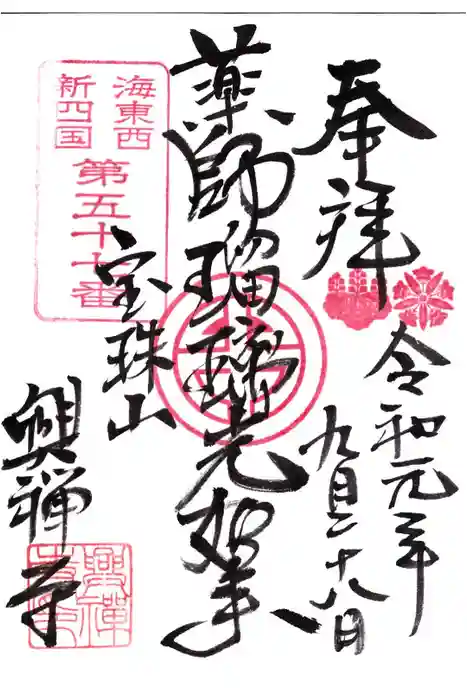 奉拝
令和元年
九月二十八日
薬師瑠璃光如来
海東西
新四国
第五十七番
宝珠山
興禅寺
興禅